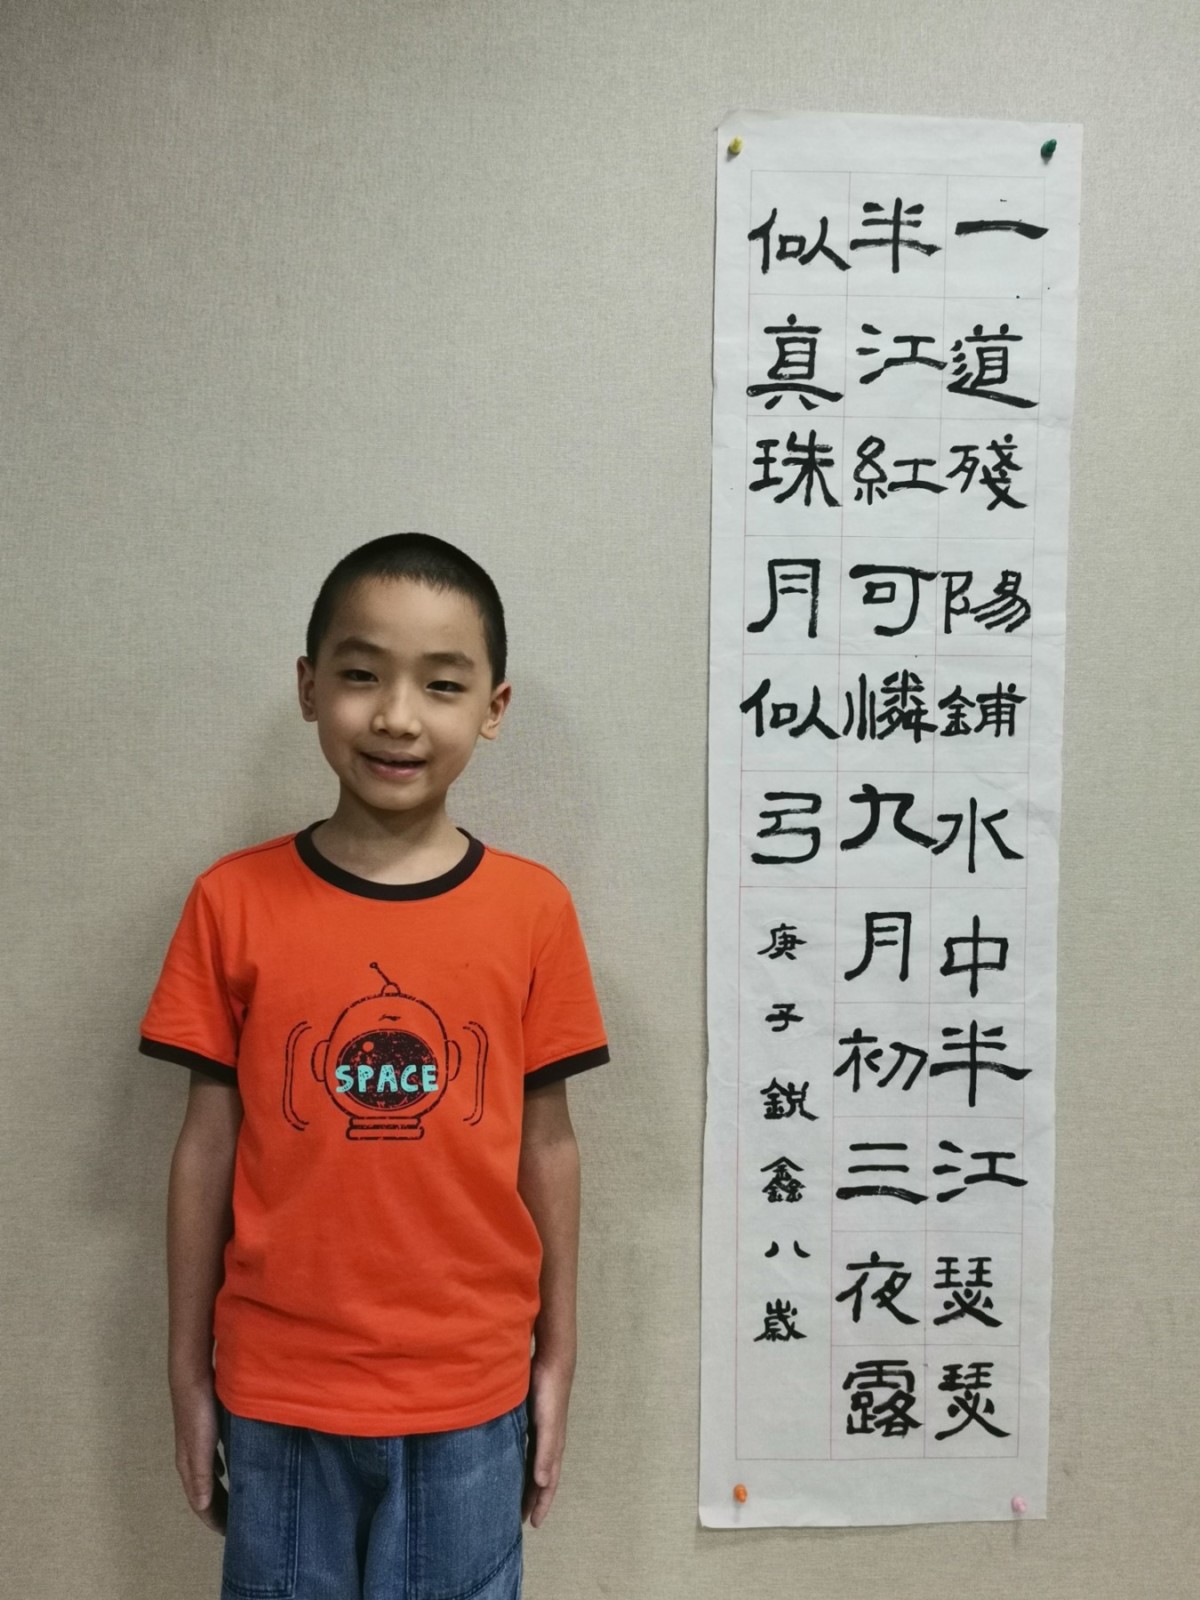 一道殘陽鋪水中半江瑟瑟
半江紅可憐九月初三夜露
似真珠月似弓
庚子銳鑫八歲
SPACE